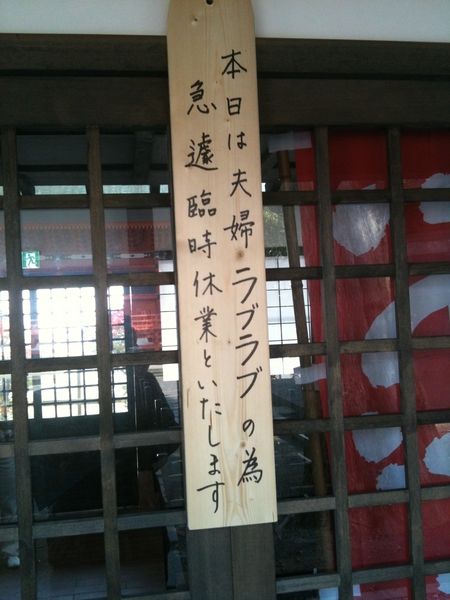 本日は夫婦ラブラブの為
急遽臨時休業といたします